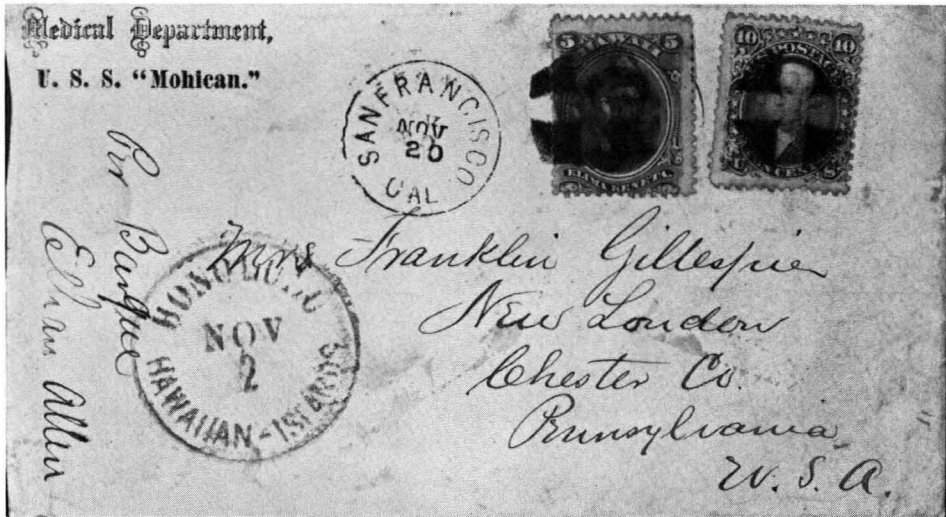 Medical Department,
U. S. S. "Mohican."
SAN FRANCISCO
NOV
20
CAL
5 HAWAII 5
ELIMA KENETA
10 U.S. POSTAGE 10
U CENTS S
Per Barque
Ethan Allen
HONOLULU
NOV
2
HAWAIIAN-ISLANDS
Mrs Franklin Gillespie
New London
Chester Co.
Pennsylvania
U. S. A.